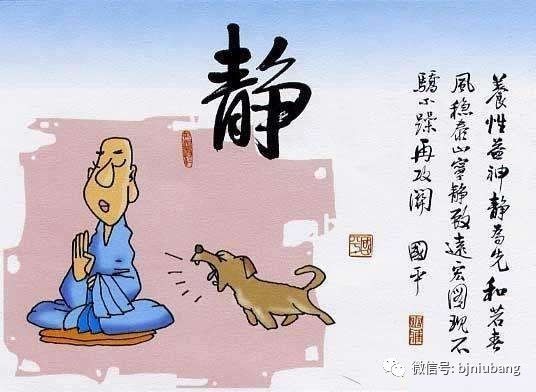 静
養性益神静為先 和若春
風稳泰山寧静致遠宏图现不
驕不躁再攻關 國平
微信号: bjniubang